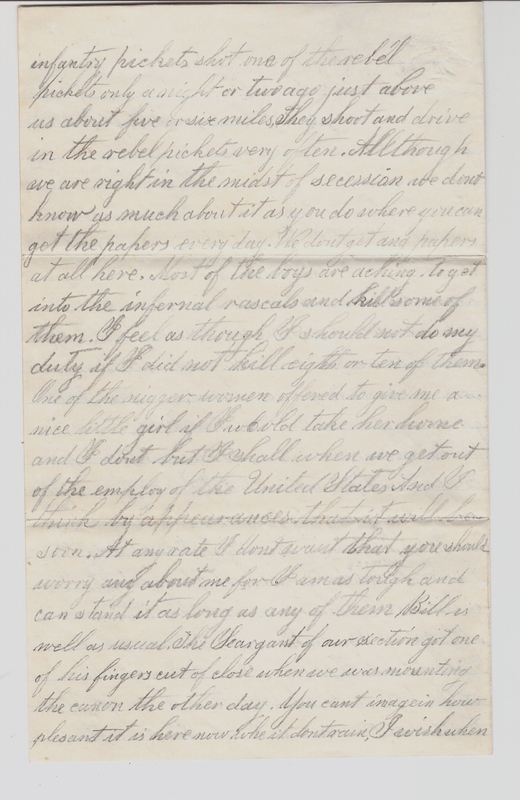 infantry pickets shot one of the rebel
pickets only a night or two ago just above
us about five or six miles, They shoot and drive
in the rebel pickets very often. Allthough
we are right in the midst of secessian we dont
know as much about it as you do where you can
get the papers every day. We dont get any papers
at all here. Most of the boys are aching to get
into the infernal rascals and kill some of
them. I feel as though I should not do my
duty if I did not kill eight or ten of them.
One of the nigger women offered to give me a
nice little girl if I would take her home
and I dont but I shall when we get out
of the employ of the United States And I
think by appearances that it will be
soon. At any rate I dont want that you should
worry any about me for I am as tough and
can stand it as long as any of them Bill is
well as usual. The Seargant of our section got one
of his fingers cut of close when we was mounting
the canon the other day. You cant imagein how
plesant it is here now whe it dont rain, I wish when